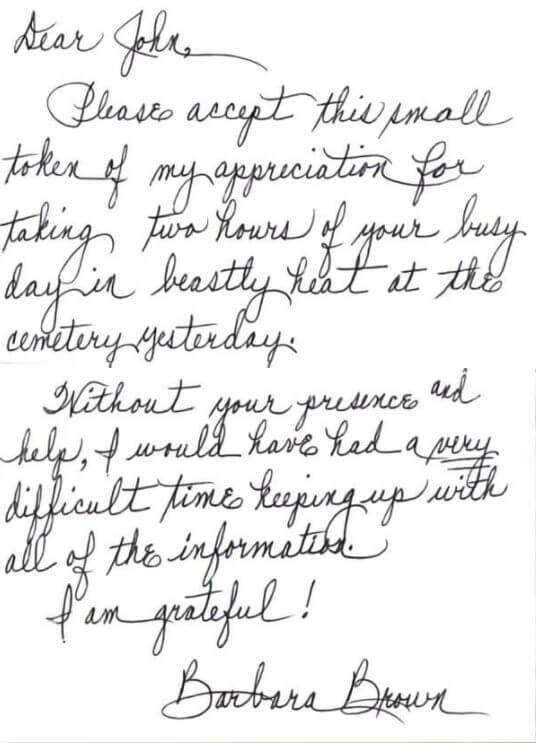 Dear John,
Please accept this small
token of my appreciation for
taking two hours of your busy
day in beastly heat at the
cemetery yesterday.
Without your presence and
help, I would have had a very
difficult time keeping up with
all of the information.
I am grateful!
Barbara Brown